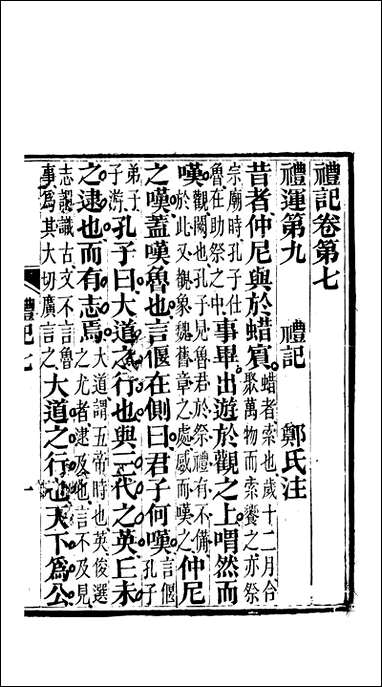 禮記卷第七
禮運第九　禮記　鄭氏注
昔者仲尼與於蜡賓蜡者索也歲十二月合聚萬物而索饗之亦祭
宗廟時孔子仕魯在助祭之中事畢出遊於觀之上喟然而
嘆觀闕也孔子見魯君於祭禮有不備於此又覩象魏舊章之處感而嘆之仲尼
之嘆蓋嘆魯也言偃在側曰君子何嘆言偃孔子
弟子子游孔子曰大道之行也與三代之英丘未
之逮也而有志焉大道謂五帝時也英俊選之尤者逮及也言不及見
志謂識古文不言魯事爲其大切廣言之大道之行也天下爲公
禮記七
一